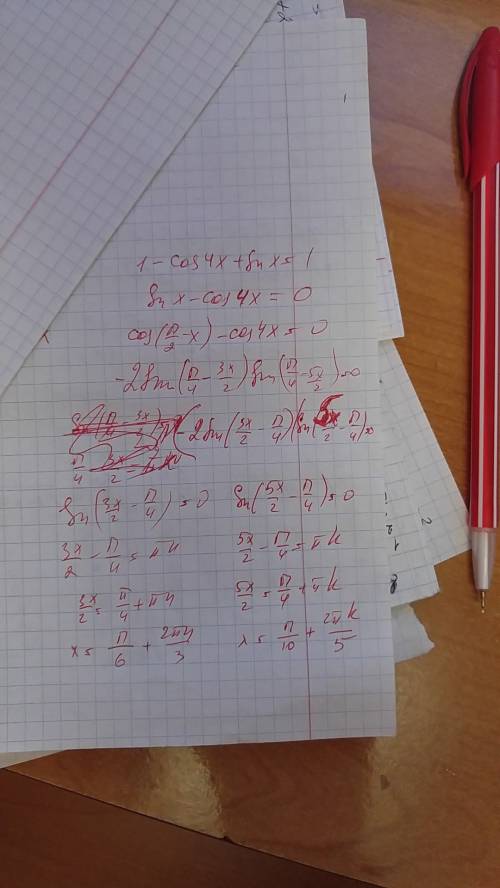 1 - cos 4x + sin x = 1
sin x - cos 4x = 0
cos(π/2 - x) - cos 4x = 0
-2 sin(π/4 - 3x/2) sin(π/4 - 5x/2) = 0
-2 sin(3x/2 - π/4) sin(5x/2 - π/4) = 0
sin(3x/2 - π/4) = 0 sin(5x/2 - π/4) = 0
3x/2 - π/4 = πn 5x/2 - π/4 = πk
3x/2 = π/4 + πn 5x/2 = π/4 + πk
x = π/6 + 2πn/3 x = π/10 + 2πk/5